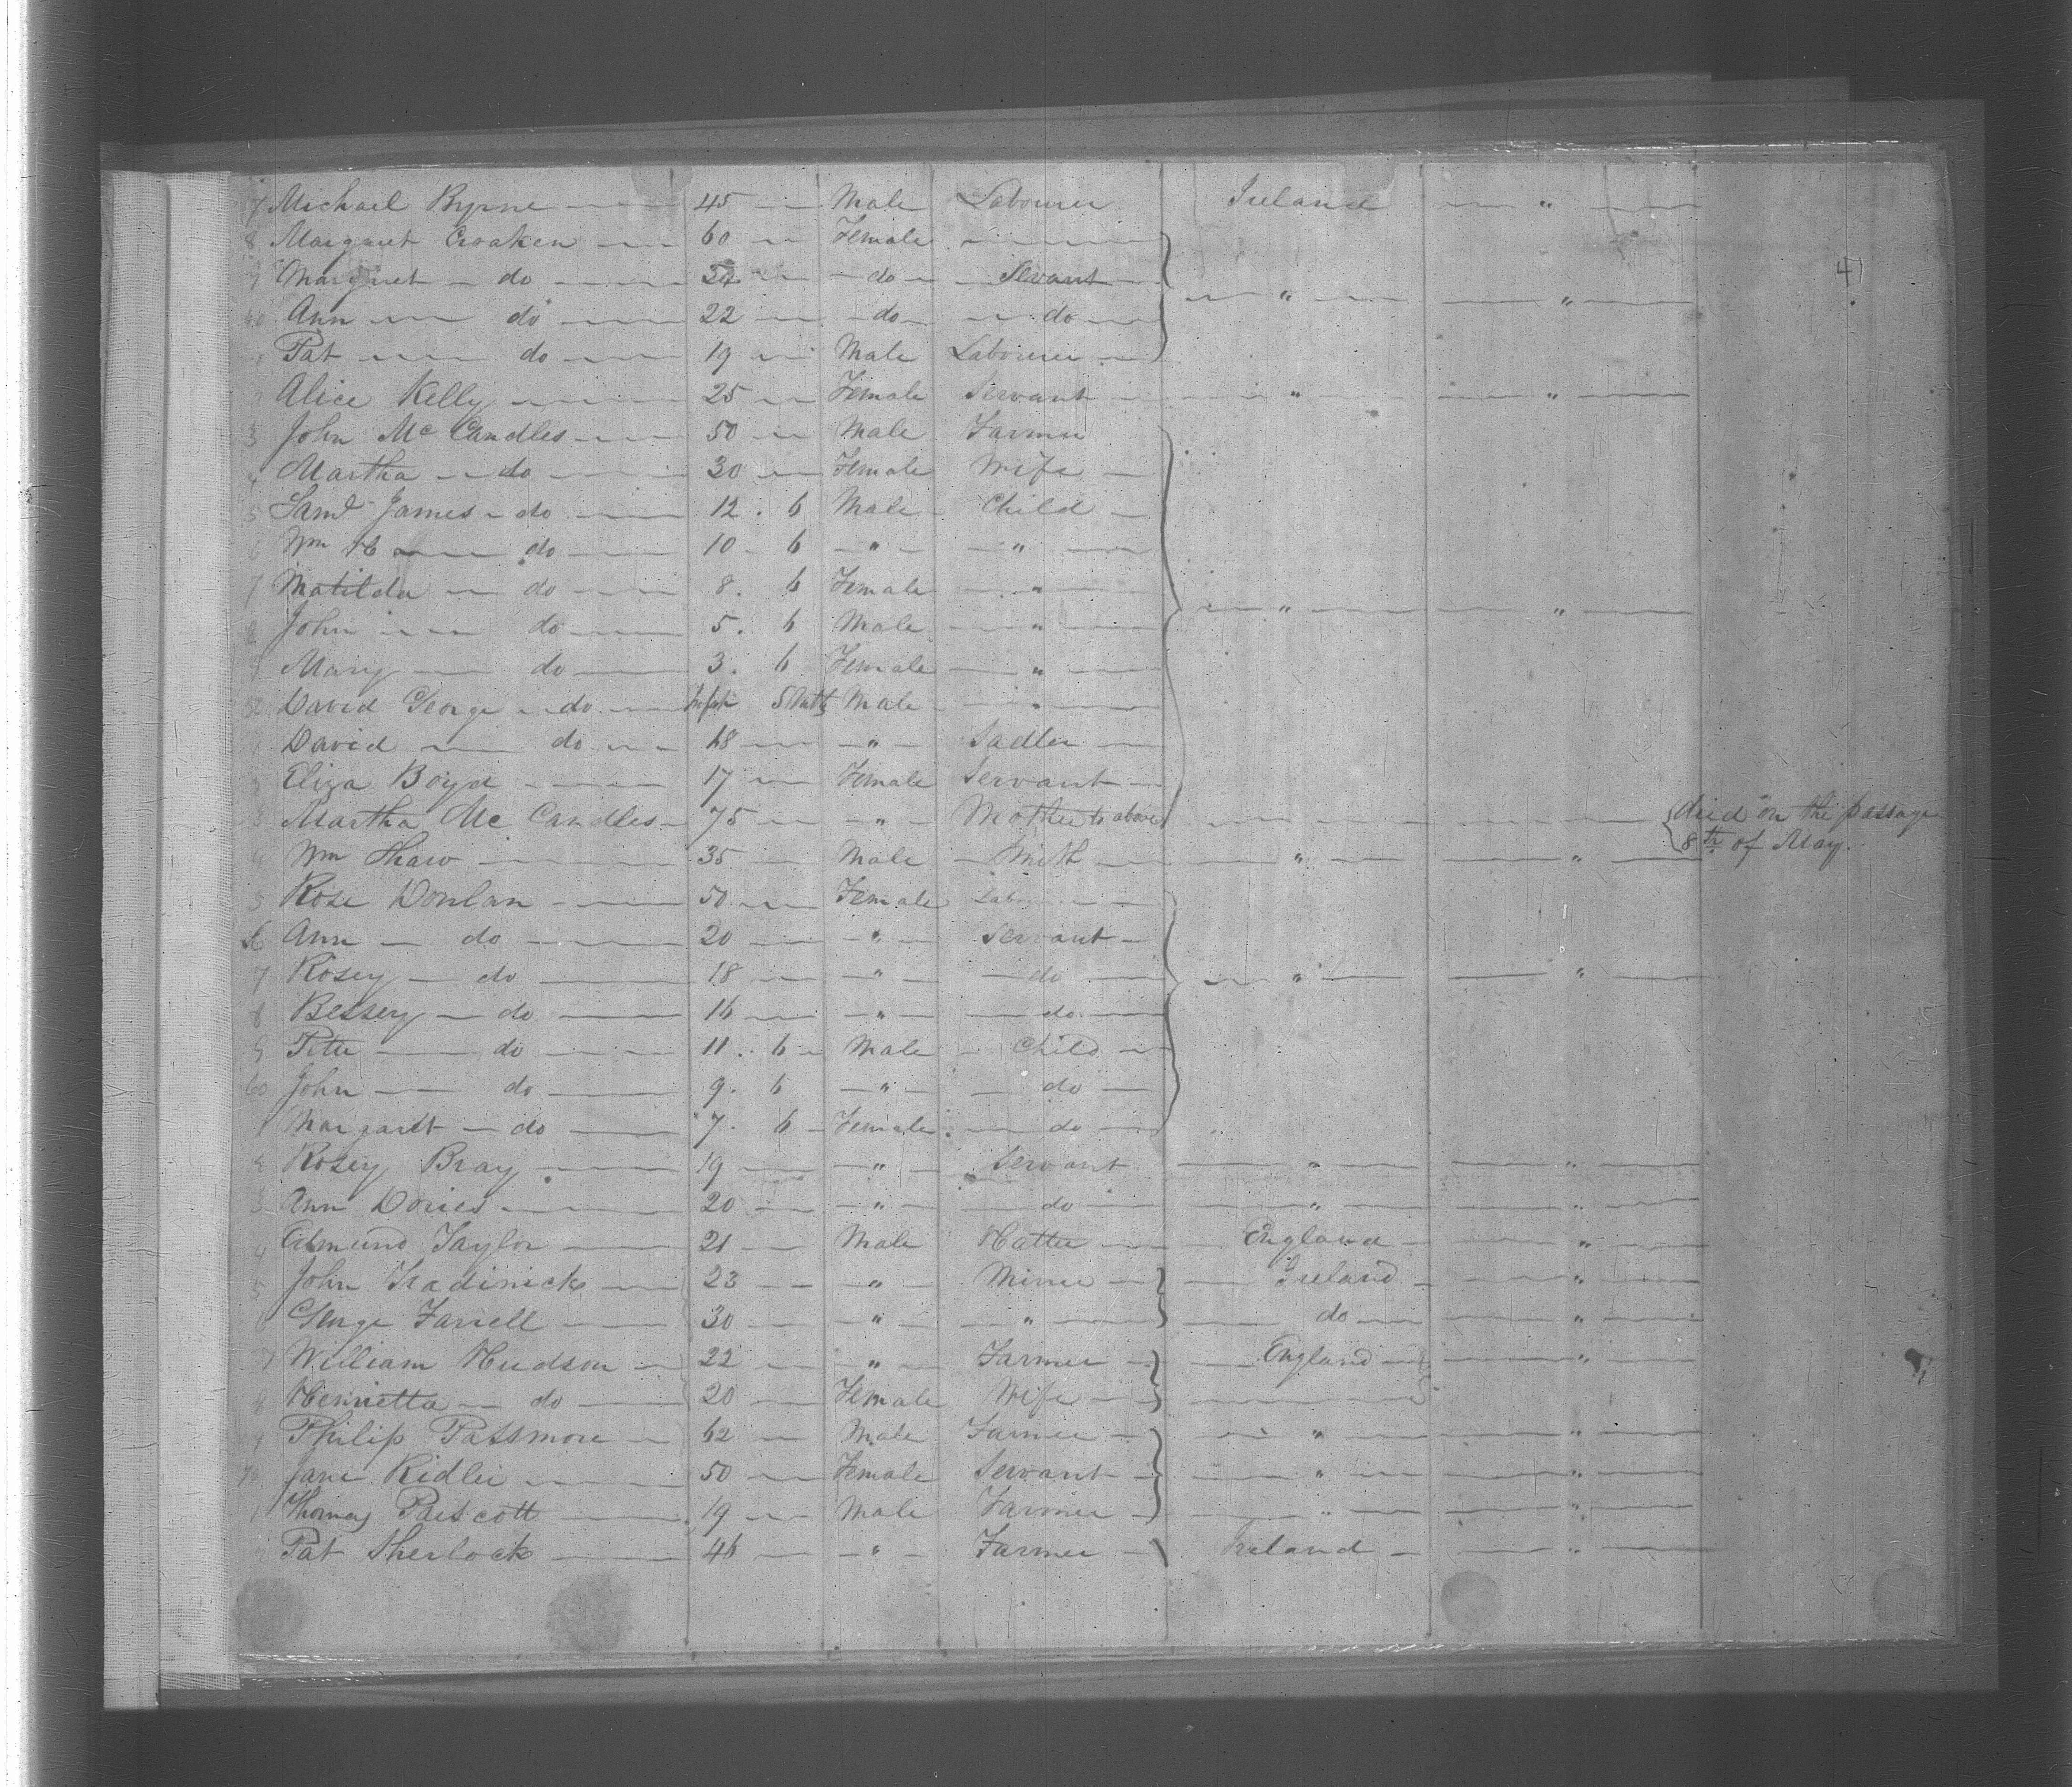 7 Michael Byrne 45 Male Labourer Ireland "
8 Margaret Croaken 60 Female
9 Margret do 24 do Servant " "
40 Ann do 22 do do
1 Pat do 19 Male Labourer
2 Alice Kelly 25 Female Servant " "
3 John Mc Candles 50 Male Farmer
4 Martha do 30 Female Wife
5 Saml James do 12 . 6 Male Child
6 Wm H do 10 . 6 " "
7 Matilda do 8 . 6 Female " " "
8 John do 5 . 6 Male "
9 Mary do 3 . 6 Female "
50 David George do 5 Mths Male "
1 David do 18 " Sadler
2 Eliza Boyd 17 Female Servant
3 Martha Mc Candles 75 " Mother to above died on the passage
8th of May.
4 Wm Shaw 35 Male Smith " "
5 Rose Donlan 50 Female
6 Ann do 20 " Servant
7 Rosey do 18 " do " "
8 Bessey do 16 " do
9 Peter do 11 . 6 Male Child
60 John do 9 . 6 " do
1 Margaret do 7 . 6 Female do
2 Rosey Bray 19 " Servant " "
3 Ann Dories 20 " do " "
4 Edmund Taylor 21 Male Hatter England "
5 John Tradinick 23 " Miner Ireland "
6 George Farrell 30 " " do "
7 William Hudson 22 " Farmer England "
8 Henrietta do 20 Female Wife
9 Philip Passmore 62 Male Farmer " "
70 Jane Ridler 50 Female Servant " "
1 Thomas Prescott 19 Male Farmer " "
2 Pat Sherlock 46 " Farmer Ireland "